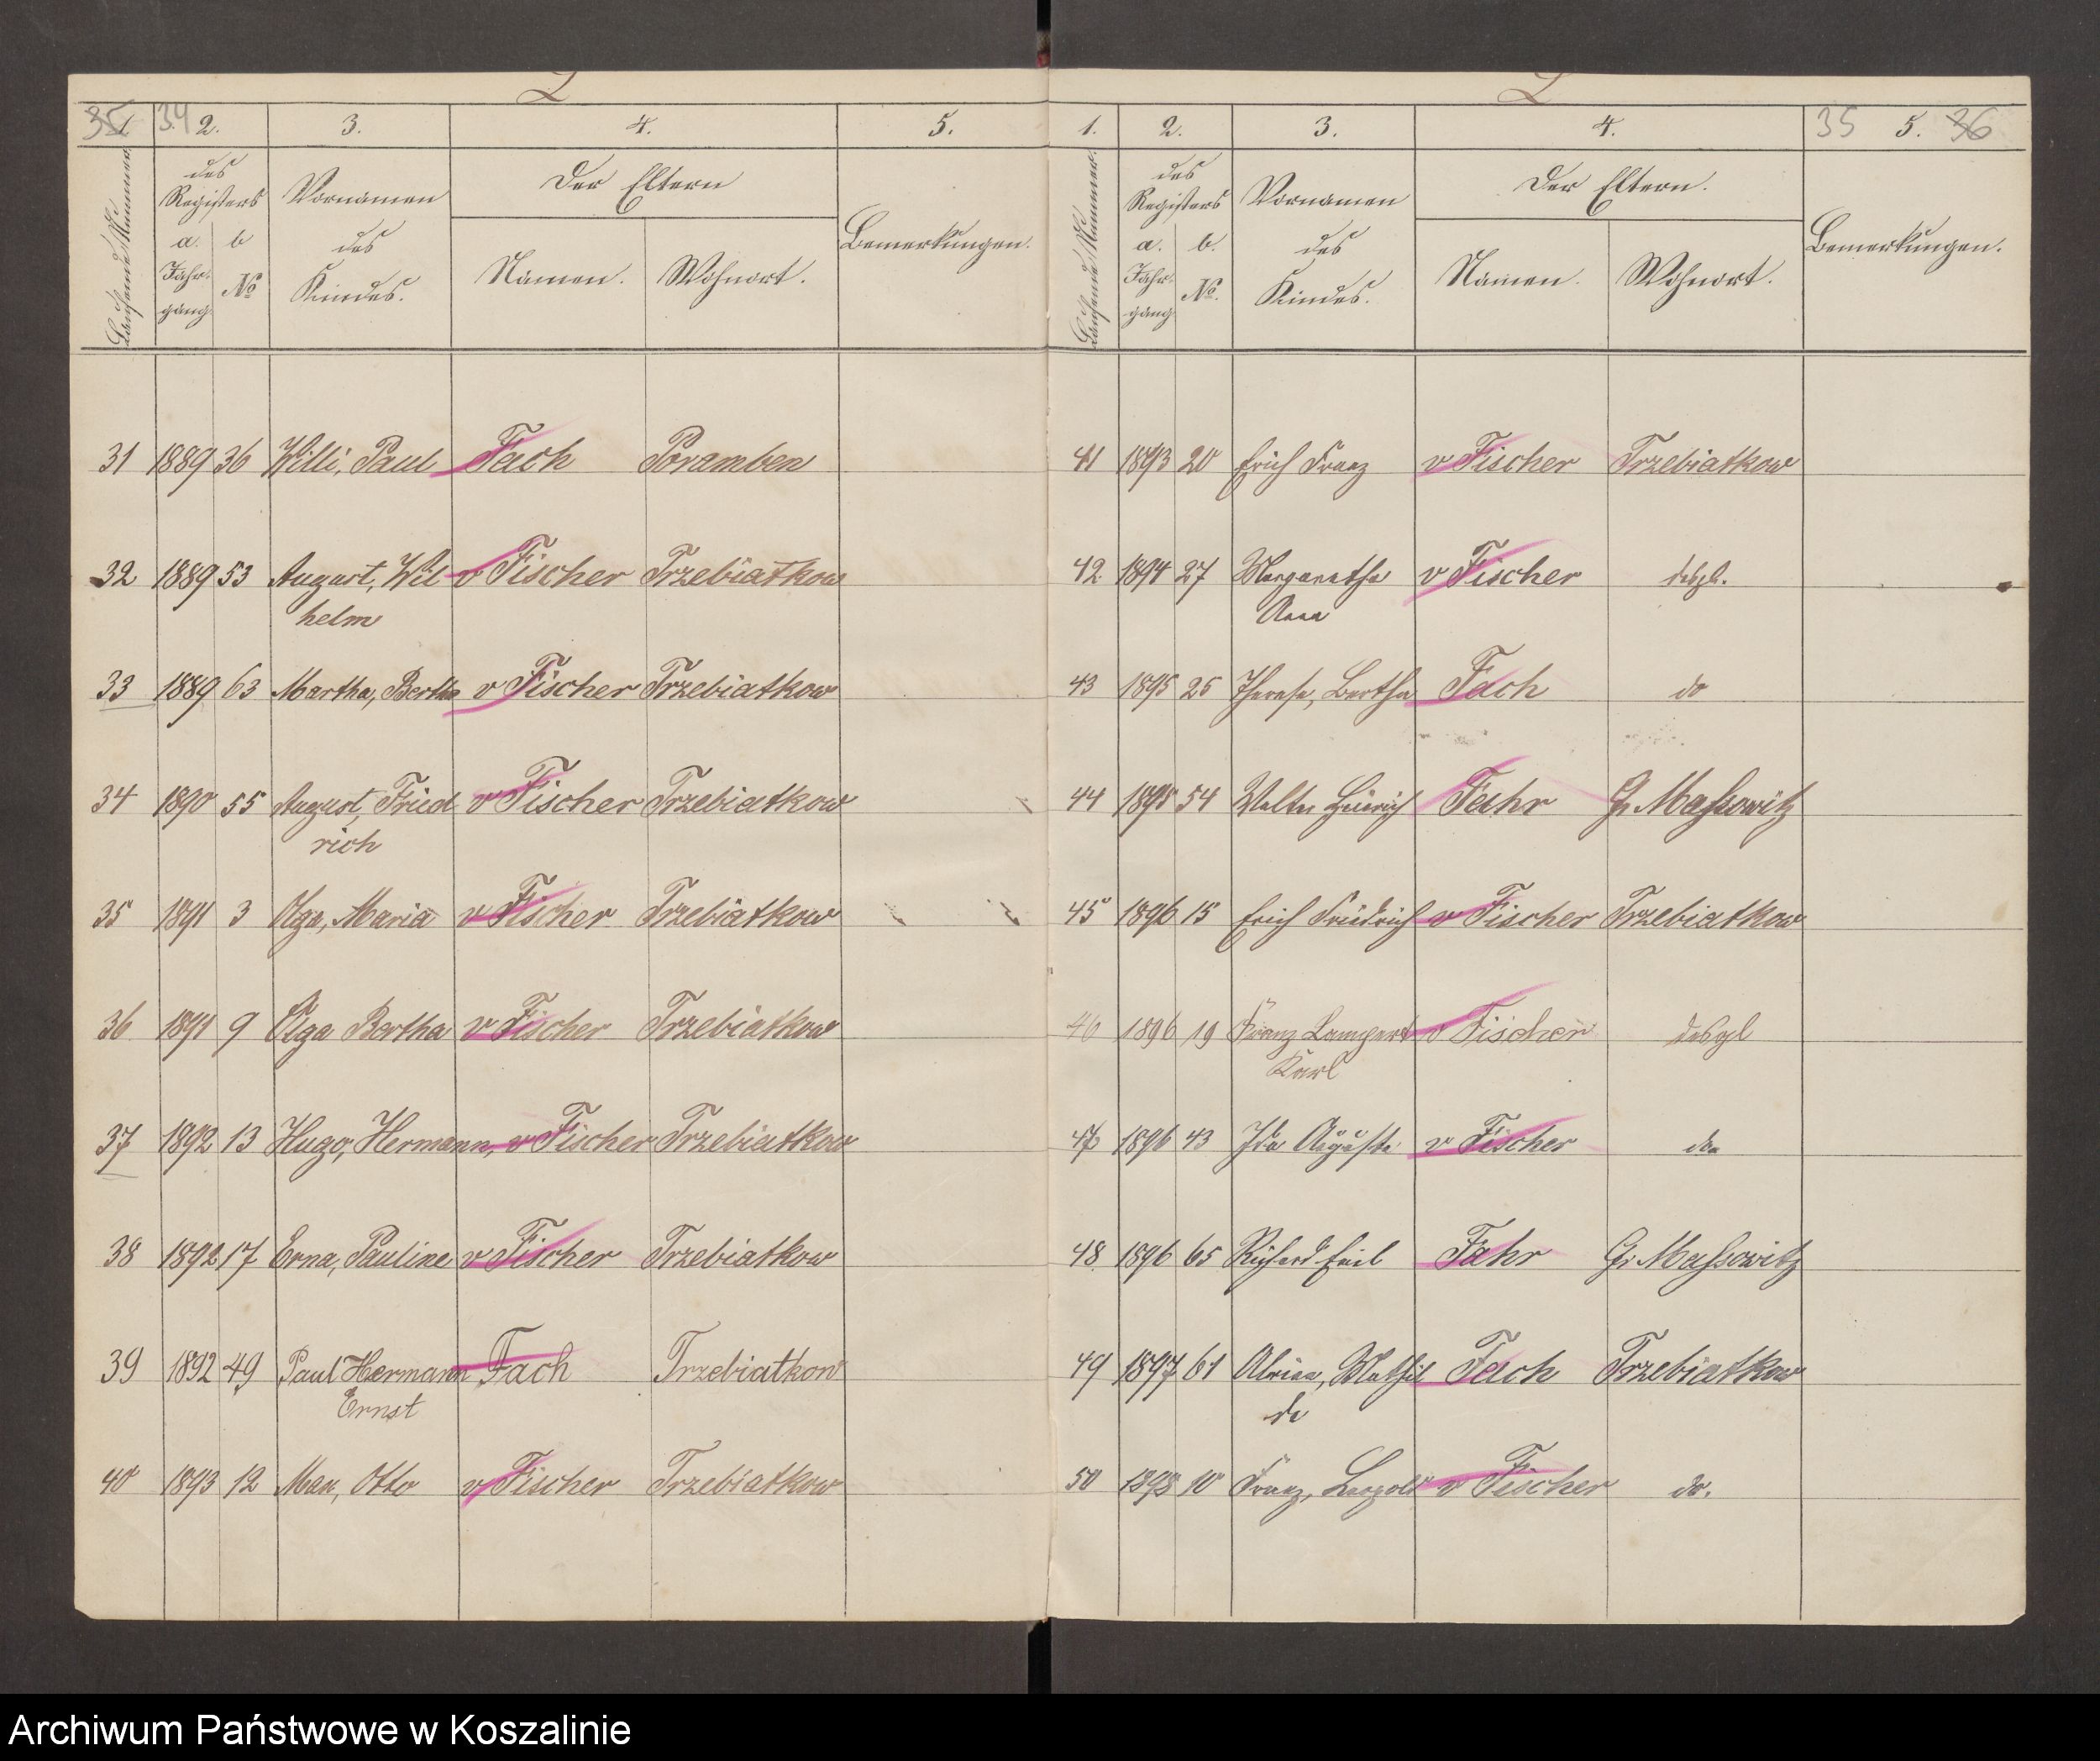 35 1. 34 2. 3. 4. 5.
Laufende Nummer.
des Registers
a. Jahrgang
b №
Vornamen des Kindes.
Der Eltern
Namen. Wohnort.
Bemerkungen.
31 1889 36 Willi, Paul Fach Poramben
32 1889 53 August, Wil v Fischer Trzebiatkow
helm
33 1889 63 Martha, Bertha v Fischer Trzebiatkow
34 1890 55 August, Fried v Fischer Trzebiatkow
rich
35 1891 3 Olga, Maria v Fischer Trzebiatkow
36 1891 9 Olga Bertha v Fischer Trzebiatkow
37 1892 13 Hugo, Hermann, v Fischer Trzebiatkow
38 1892 17 Erna, Pauline v Fischer Trzebiatkow
39 1892 49 Paul Hermann Fach Trzebiatkow
Ernst
40 1893 12 Max, Otto v Fischer Trzebiatkow
1. 2. 3. 4. 35 5. 36
Laufende Nummer.
des Registers
a. Jahrgang
b. №.
Vornamen des Kindes.
Der Eltern.
Namen. Wohnort.
Bemerkungen.
41 1893 20 Erich Franz v Fischer Trzebiatkow
42 1894 27 Margarethe v Fischer desgl.
Anna
43 1895 25 Therese, Bertha Fach do
44 1895 54 Walter Heinrich Fahr Gr Massowitz
45 1896 15 Erich Friedrich v Fischer Trzebiatkow
46 1896 19 Franz Lampert v Fischer desgl
Karl
47 1896 43 Ida Auguste v Fischer do
48 1896 65 Richard Emil Fahr Gr Massowitz
49 1897 61 Mathil Fach Trzebiatkow
de
50 1898 10 Franz, Leopold v Fischer do.
Archiwum Państwowe w Koszalinie